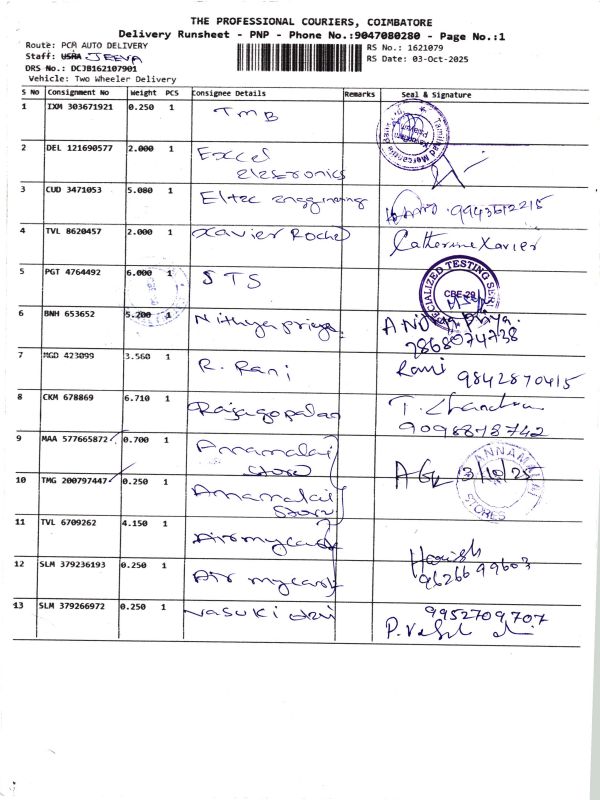 THE PROFESSIONAL COURIERS, COIMBATORE
Delivery Runsheet - PNP - Phone No.:9047080280 - Page No.:1
Route: PCM AUTO DELIVERY
RS No.: 1621079
Staff: USHA JEEVA
RS Date: 03-Oct-2025
DRS No.: DCJB162107901
Vehicle: Two Wheeler Delivery
S No Consignment No Weight PCS Consignee Details Remarks Seal & Signature
1 IXM 303671921 0.250 1 TMB
2 DEL 121690577 2.000 1 Excel
electronics
3 CUD 3471053 5.080 1 Eltec engginering 9943512215
4 TVL 8620457 2.000 1 Xavier Roche Catherine Xavier
5 PGT 4764492 6.000 1 STS SPECIALIZED TESTING SER
CBE-29
6 BNH 653652 5.200 1 Nithyapriya
2868074738
7 MGD 423099 3.560 1 R. Rani Rani 9842870415
8 CKM 678869 6.710 1 Rajagopalan T. Chandra
9 MAA 577665872 0.700 1 Annamalai
Store
3/10/25
ANNAMALAI STORES
10 TMG 200797447 0.250 1 Annamalai
Store
11 TVL 6709262 4.150 1 Air mycash
Harish
9626699603
12 SLM 379236193 0.250 1 Air mycash
13 SLM 379266972 0.250 1 Vasuki devi 9952709707